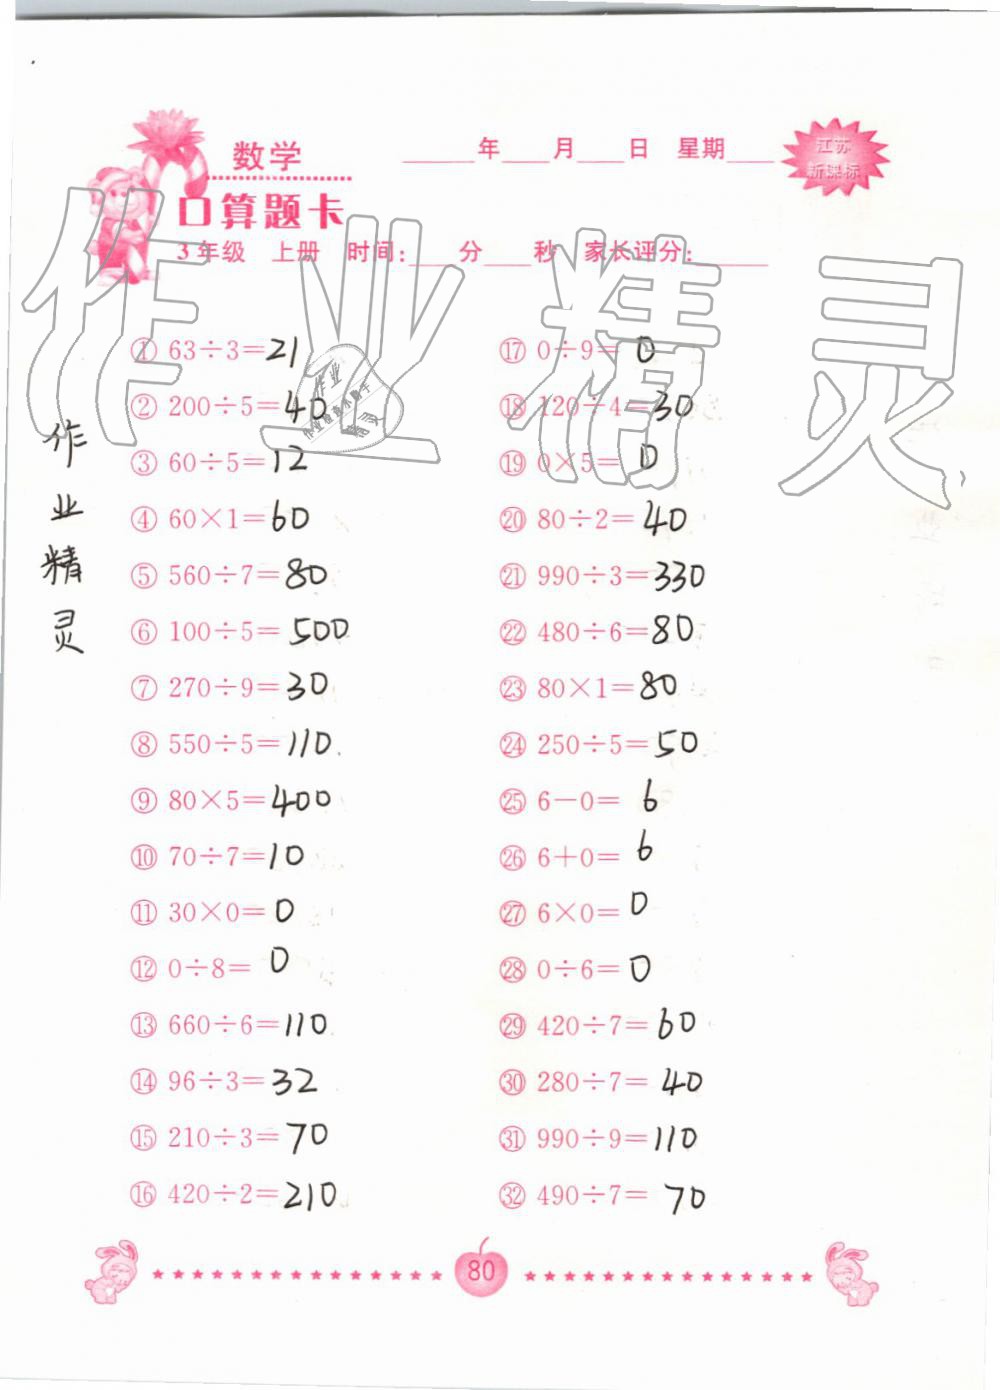 数学
____年____月____日 星期____
江苏
新课标
口算题卡
3年级 上册 时间:____分____秒 家长评分:____
作业精灵
作业精灵
① 63÷3=21
② 200÷5=40
③ 60÷5=12
④ 60×1=60
⑤ 560÷7=80
⑥ 100÷5=500
⑦ 270÷9=30
⑧ 550÷5=110
⑨ 80×5=400
⑩ 70÷7=10
⑪ 30×0=0
⑫ 0÷8=0
⑬ 660÷6=110
⑭ 96÷3=32
⑮ 210÷3=70
⑯ 420÷2=210
⑰ 0÷9=0
⑱ 120÷4=30
⑲ 0×5=0
⑳ 80÷2=40
㉑ 990÷3=330
㉒ 480÷6=80
㉓ 80×1=80
㉔ 250÷5=50
㉕ 6-0=6
㉖ 6+0=6
㉗ 6×0=0
㉘ 0÷6=0
㉙ 420÷7=60
㉚ 280÷7=40
㉛ 990÷9=110
㉜ 490÷7=70
80